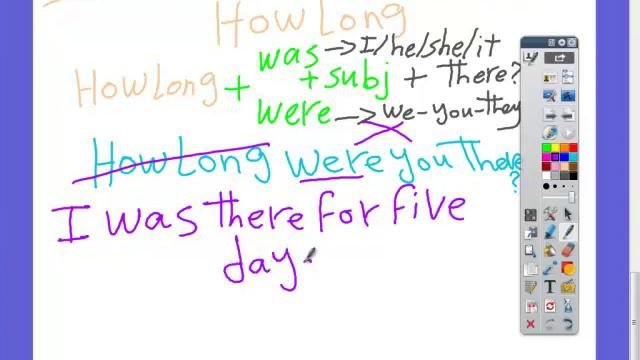 How Long
was → I/he/she/it
How Long + + subj + There?
were → we-you-they
How Long were you There?
I was there for five
day